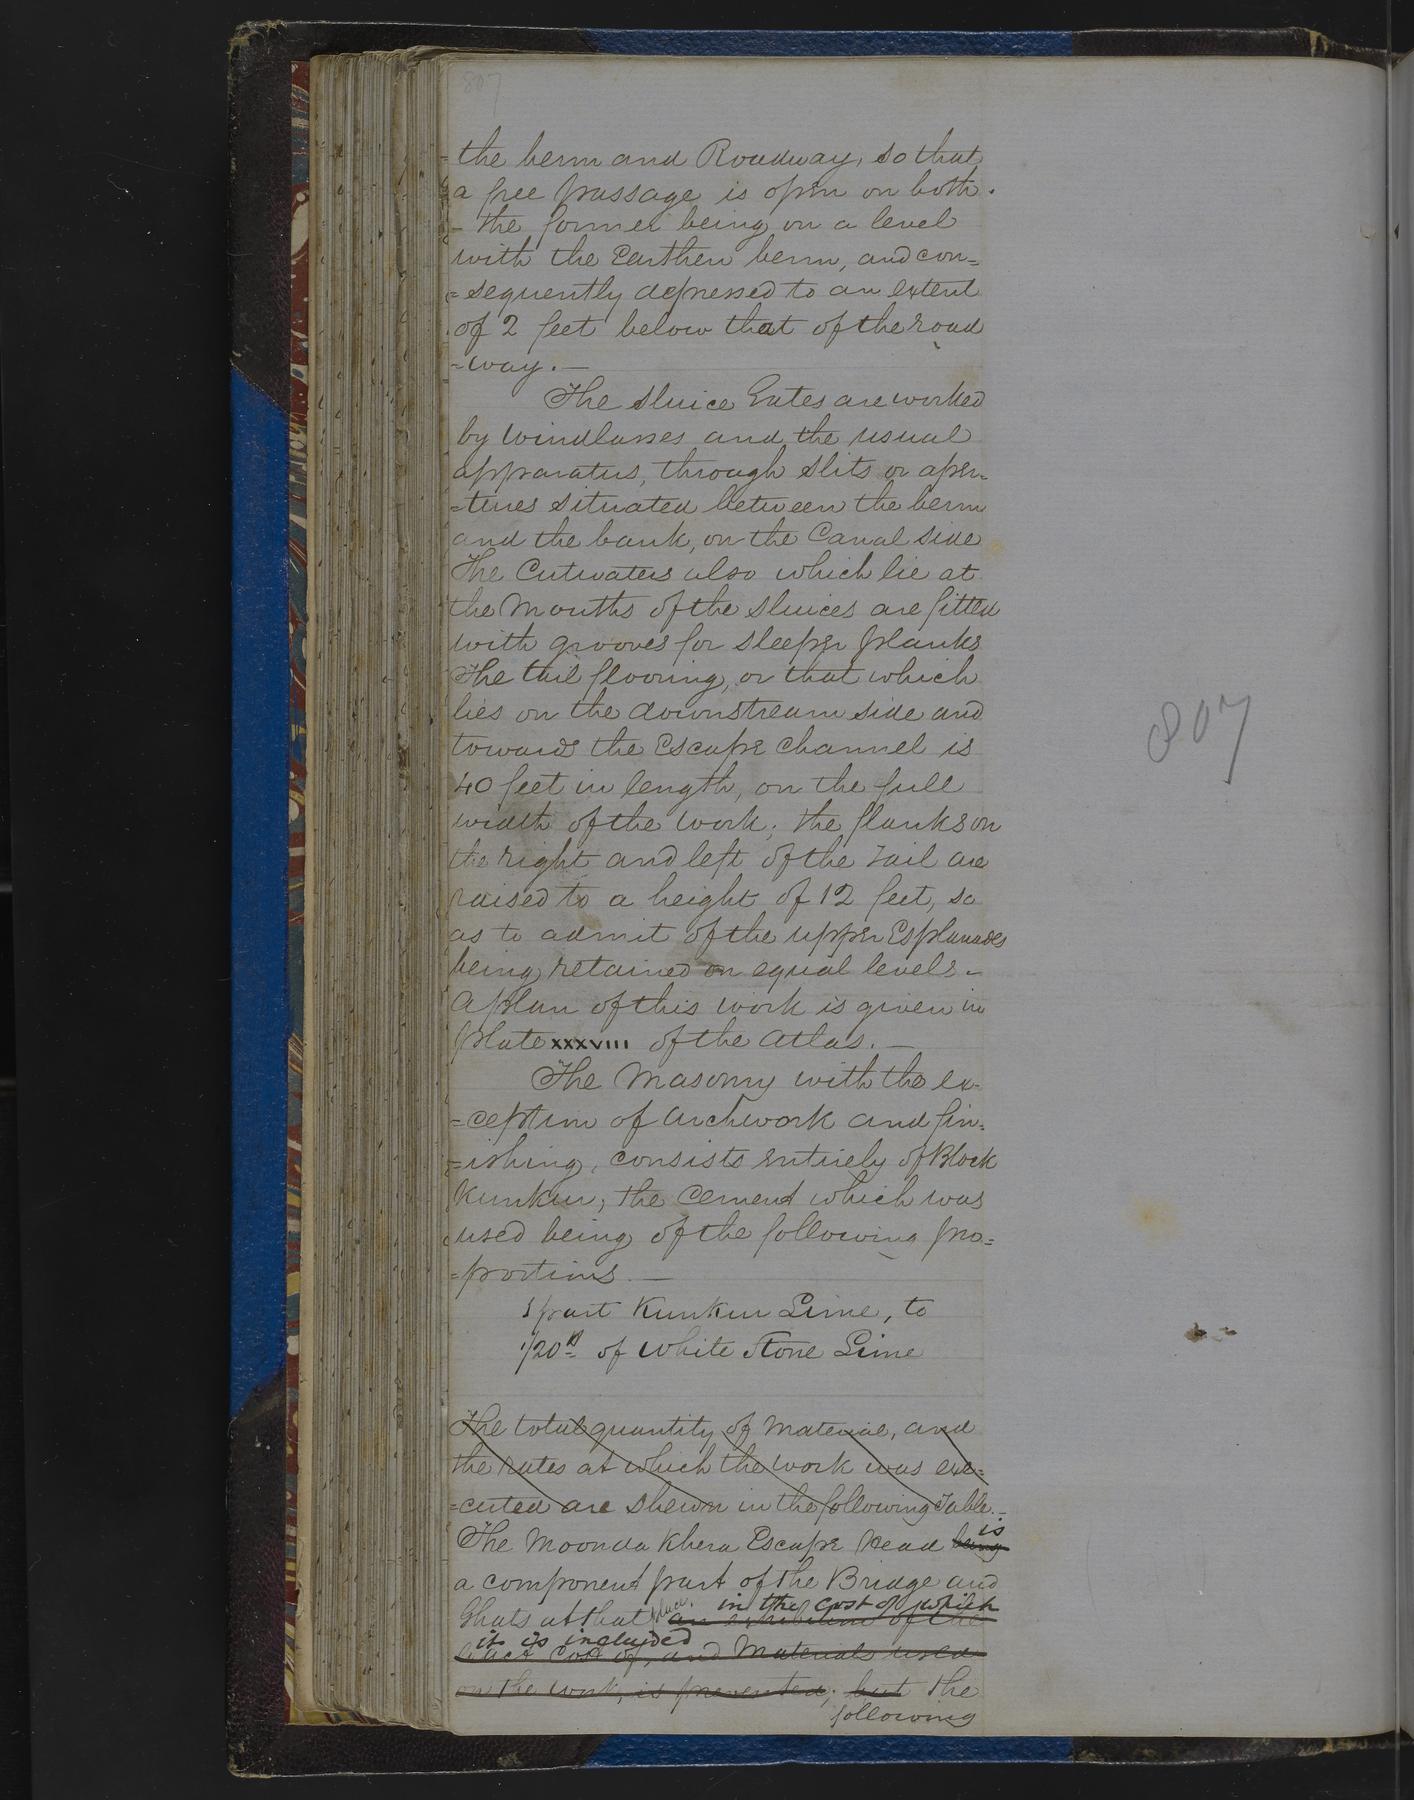 807
the berm and Roadway, so that
a free passage is open on both.
- the former being on a level
with the Earthen berm, and con=
=sequently depressed to an extent
of 2 feet below that of the road
=way. —
The Sluice Gates are worked
by windlasses and the usual
apparatus, through slits or aper=
=tures situated between the berm
and the bank, on the Canal side
The Cutwaters also which lie at
the Mouths of the sluices are fitted
with grooves for sleeper planks
The tail flooring, or that which
lies on the downstream side and
towards the Escape Channel is
40 feet in length, on the full
width of the work; the flanks on
the right and left of the Tail are
raised to a height of 12 feet, so
as to admit of the upper Esplanades
being retained on equal levels -
A plan of this work is given in
plate XXXVIII of the Atlas. —
807
The Masonry with the ex-
=ception of archwork and fin=
=ishing, consists entirely of Block
Kunkur, the Cement which was
used being of the following pro=
=portions —
1 part Kunkur Lime, to
1/20th of White Stone Lime
The total quantity of Material, and
the rates at which the work was exe=
=cuted are shewn in the following Table. -
The Moonda Khera Escape Head being is
a component part of the Bridge and
Ghats at that place, in the cost of which
an exhibition of the
it is included
exact Cost of, and Materials used
on the work, is presented, but the
following